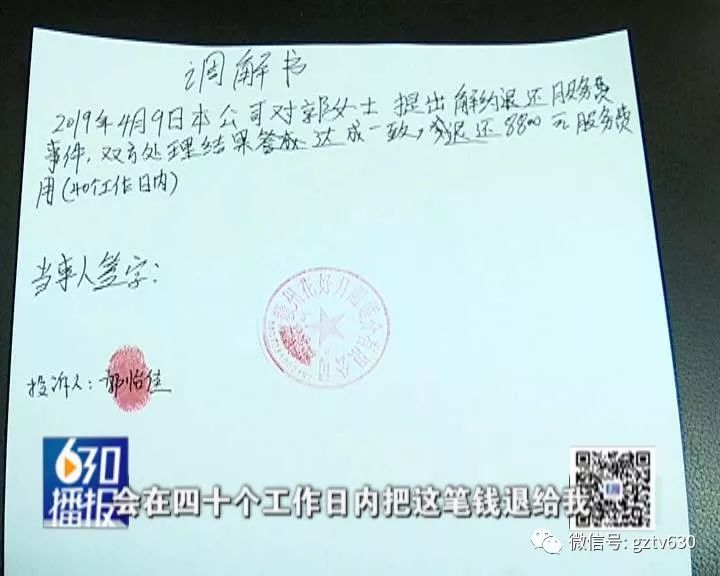 调解书
2019年4月9日本公司对郭女士提出解约退还服务费
事件,双方处理结果答应达成一致,退还8800元服务费
用(40个工作日内)
当事人签字:
花好月圆
有限公司
投诉人:郭怡佳
630
播报
会在四十个工作日内把这笔钱退给我
微信号: gztv630